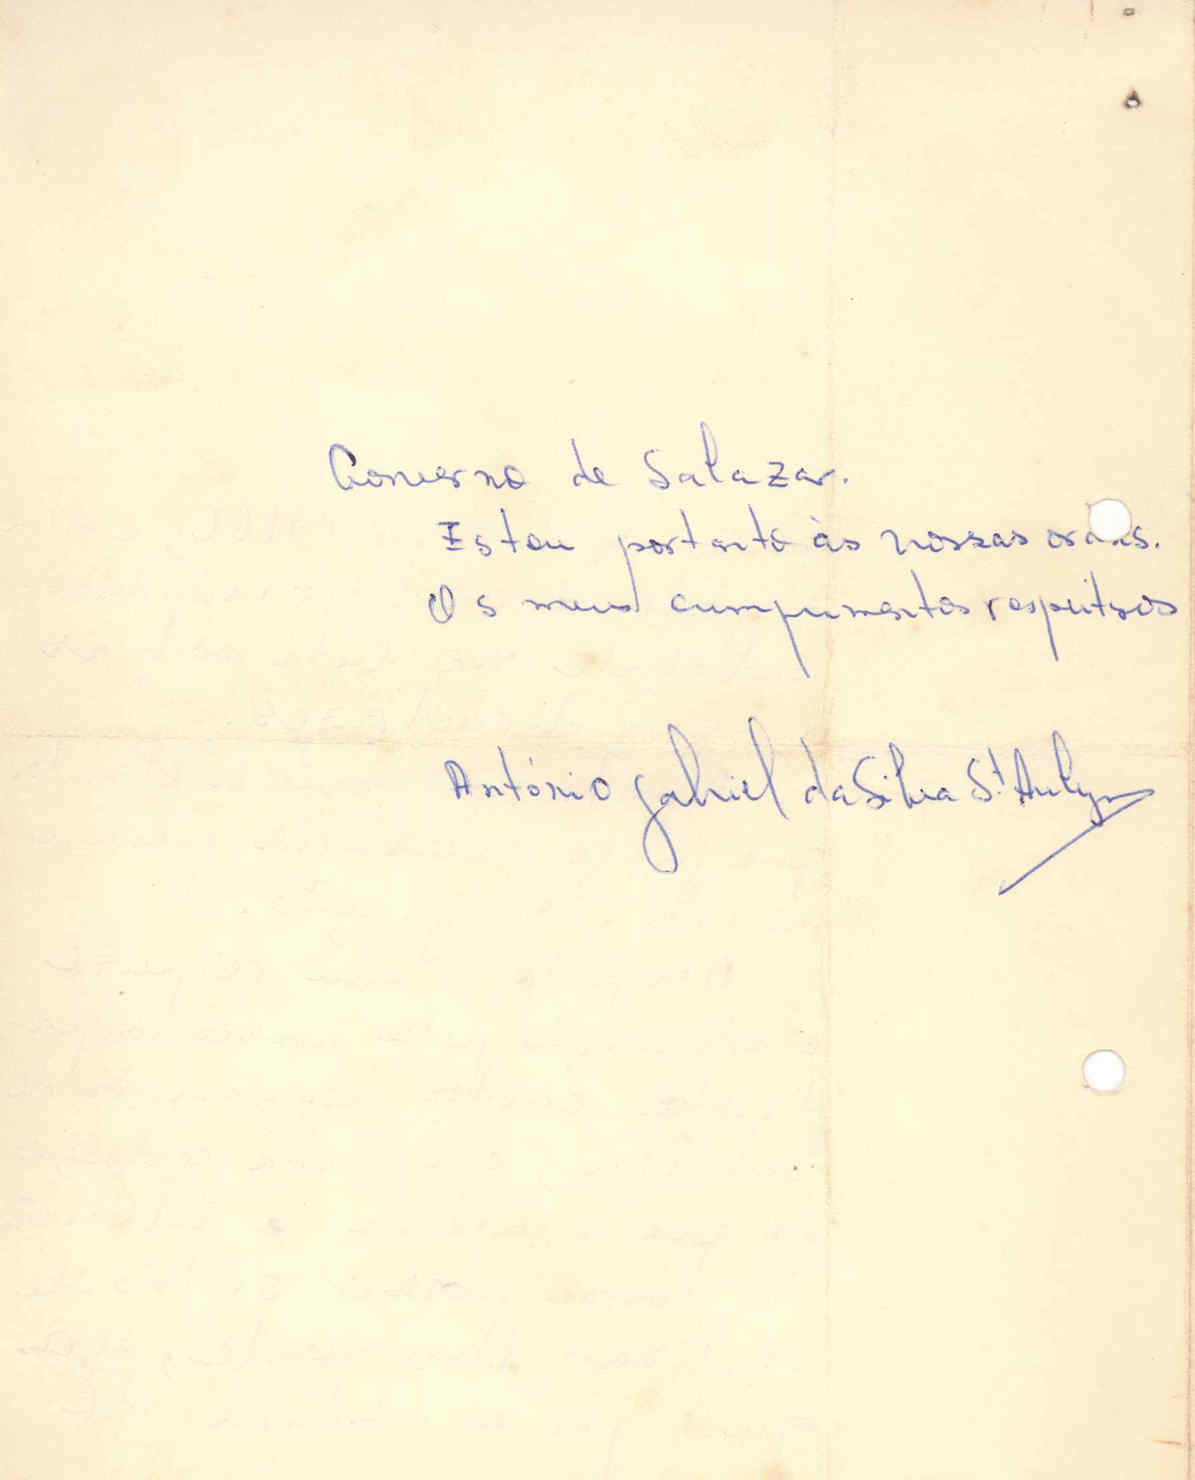 Governo de Salazar.
Estou portanto às vossas ordens.
Os meus cumprimentos respeitosos
António Gabriel da Silva St.